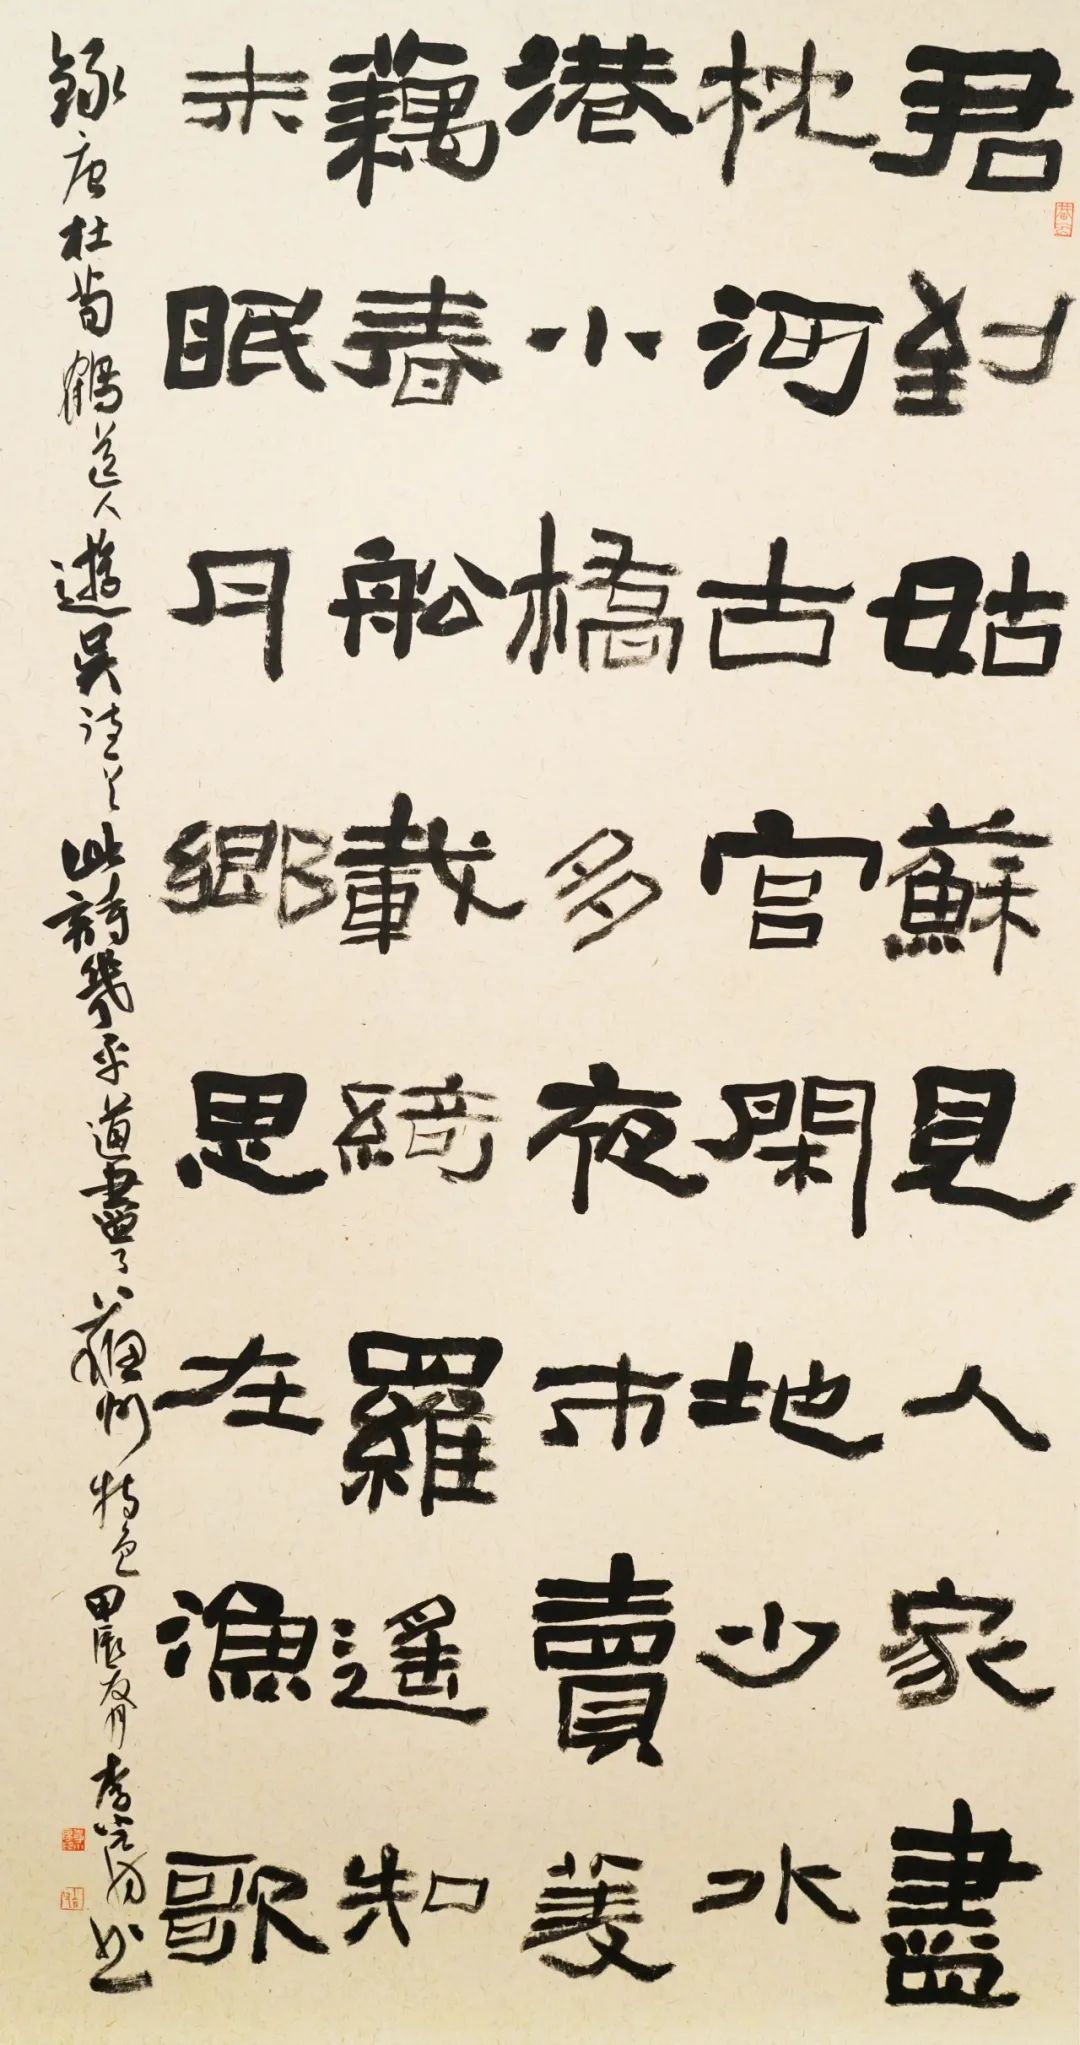 君到姑蘇見人家盡
枕河古宫閑地少水
港小橋多夜市賣菱
藕春船載綺羅遥知
未眠月鄉思在漁歌
錄唐杜荀鶴送人遊吴詩 此詩幾乎道盡了蘇州特色 甲辰 李 书